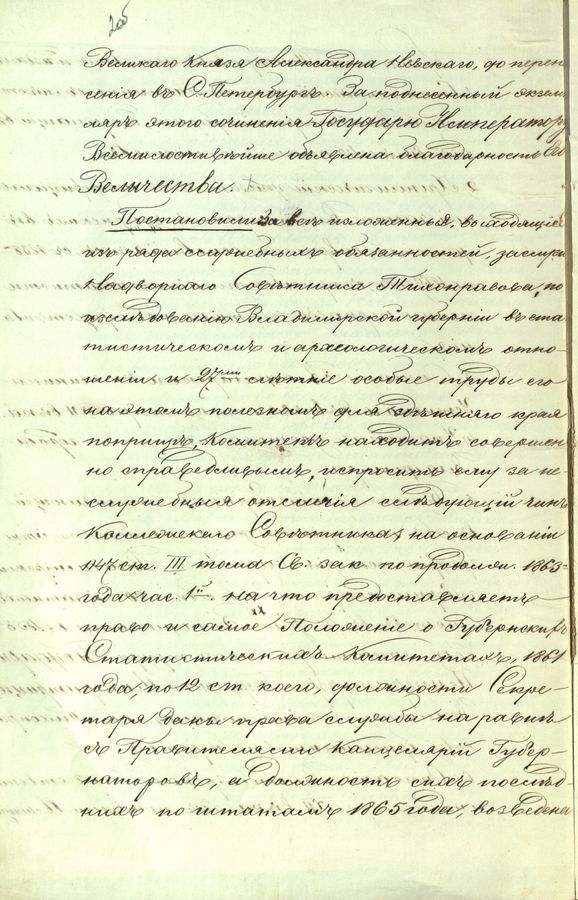 2об
Великаго Князя Александра Невскаго, до перене
сенія въ С. Петербургъ. За поднесенный экзем
ляръ этого сочиненія Государю Императору
Всемилостивѣйше объявлена благодарность Его
Величества.
Постановили: За всѣ изложенныя, выходящія
изъ ряда служебныхъ обязанностей, заслуги
Надворнаго Совѣтника Тихонравова, по
изслѣдованію Владимірской губерніи въ ста
тистическомъ и археологическомъ отно
шеніи и 27ми лѣтніе особые труды его
на этомъ полезномъ для здѣшняго края
поприщѣ, Комитетъ находитъ совершен
но справедливымъ, испросить ему за не
служебныя отличія слѣдующій чинъ
Коллежскаго Совѣтника, на основаніи
1147 ст. III тома Св: зак. по продолж. 1863
года час. 1й. на что предоставляетъ
право и самое Положеніе о Губернских
Статистическихъ Комитетахъ, 1861
года, по 12 ст. коего, должности Секре
таря даны права службы наравнѣ
съ Правителями Канцелярій Губер
наторовъ, а должность сихъ послѣд
нихъ по штатамъ 1865 года, возведена